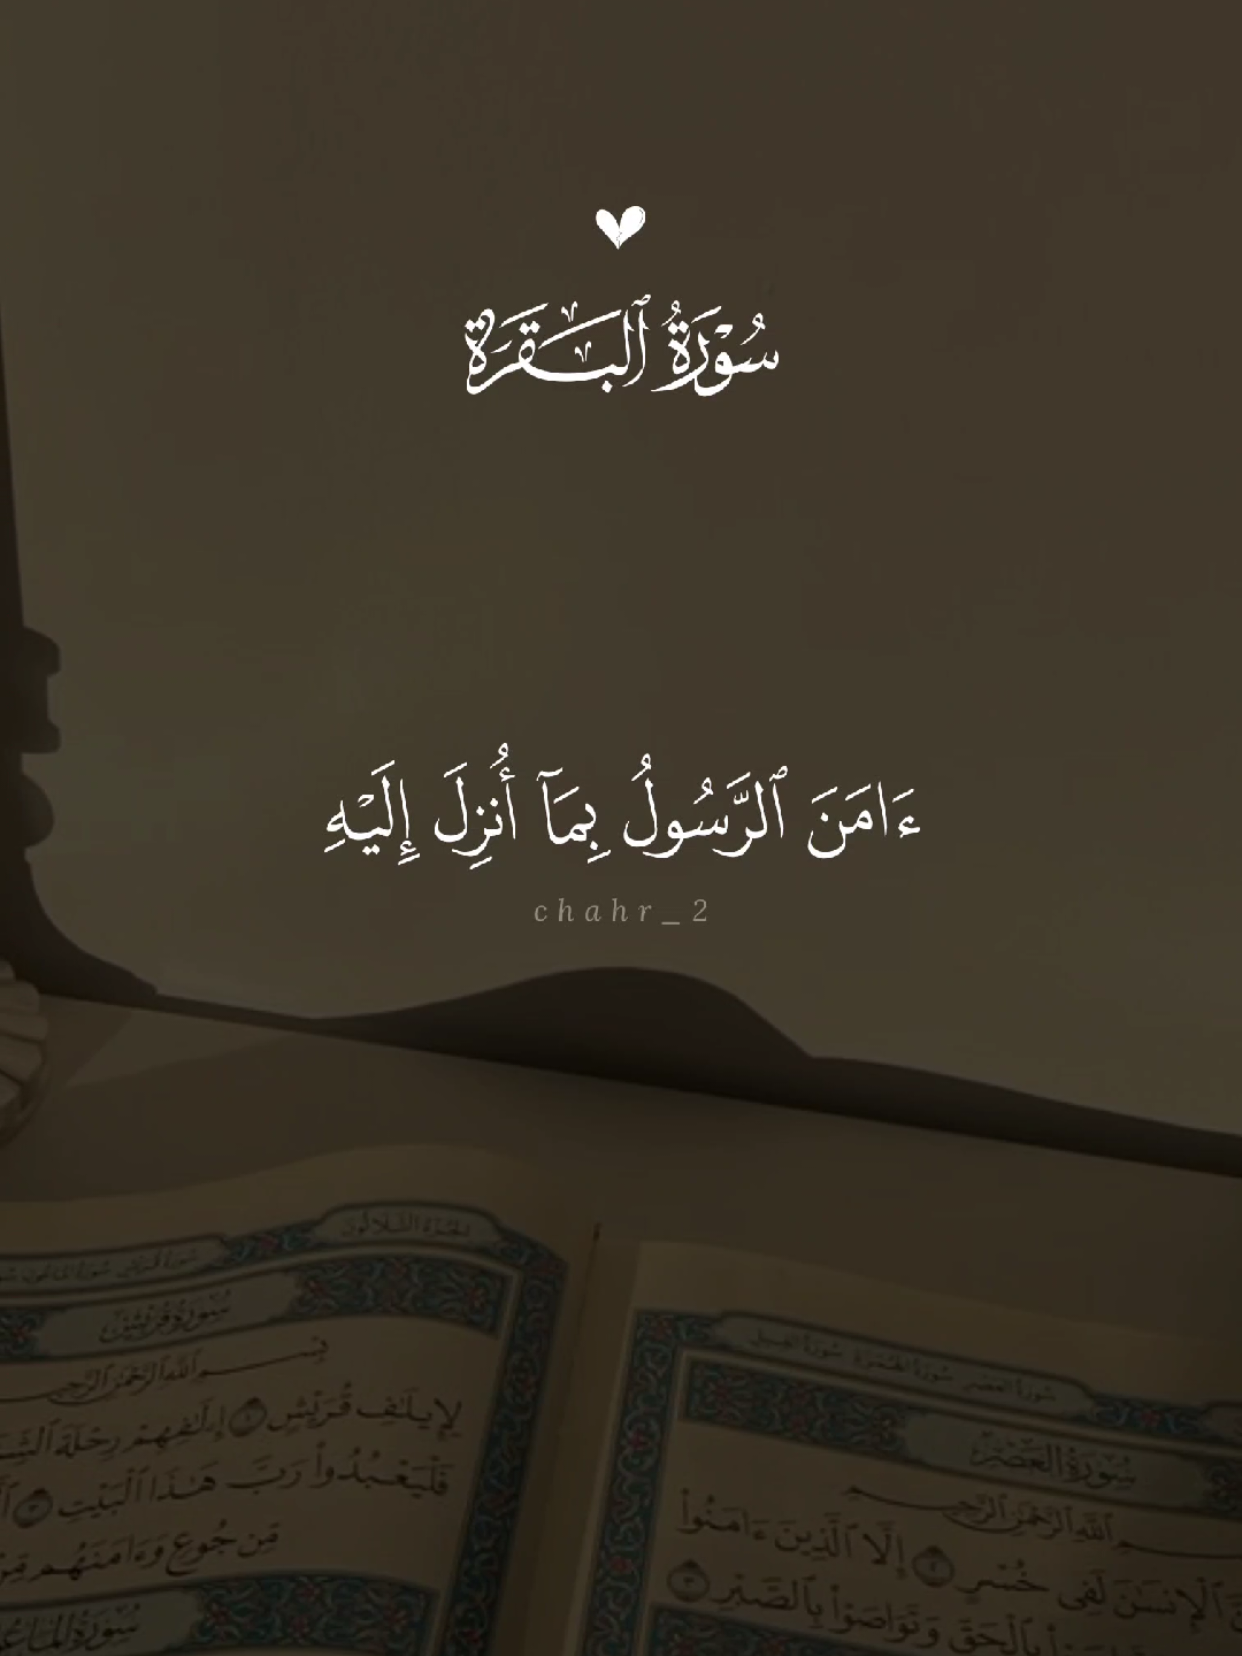 سُوْرَةُ ٱلبَقَرَة
ءَامَنَ ٱلرَّسُولُ بِمَآ أُنزِلَ إِلَيْهِ
chahr_2
سُورَةُ قُرَيْشٍ
لِإِيلَٰفِ قُرَيْشٍ ۝١ إِۦلَٰفِهِمْ رِحْلَةَ
فَلْيَعْبُدُوا۟ رَبَّ هَٰذَا ٱلْبَيْتِ ۝٣
مِّن جُوعٍ وَءَامَنَهُم مِّنْ
سُورَةُ العَصْرِ
ٱللَّهِ ٱلرَّحْمَٰنِ ٱلرَّحِيمِ
ٱلْإِنسَٰنَ لَفِى خُسْرٍ ۝٢ إِلَّا ٱلَّذِينَ ءَامَنُوا۟
بِٱلْحَقِّ وَتَوَاصَوْا۟ بِٱلصَّبْرِ ۝٣